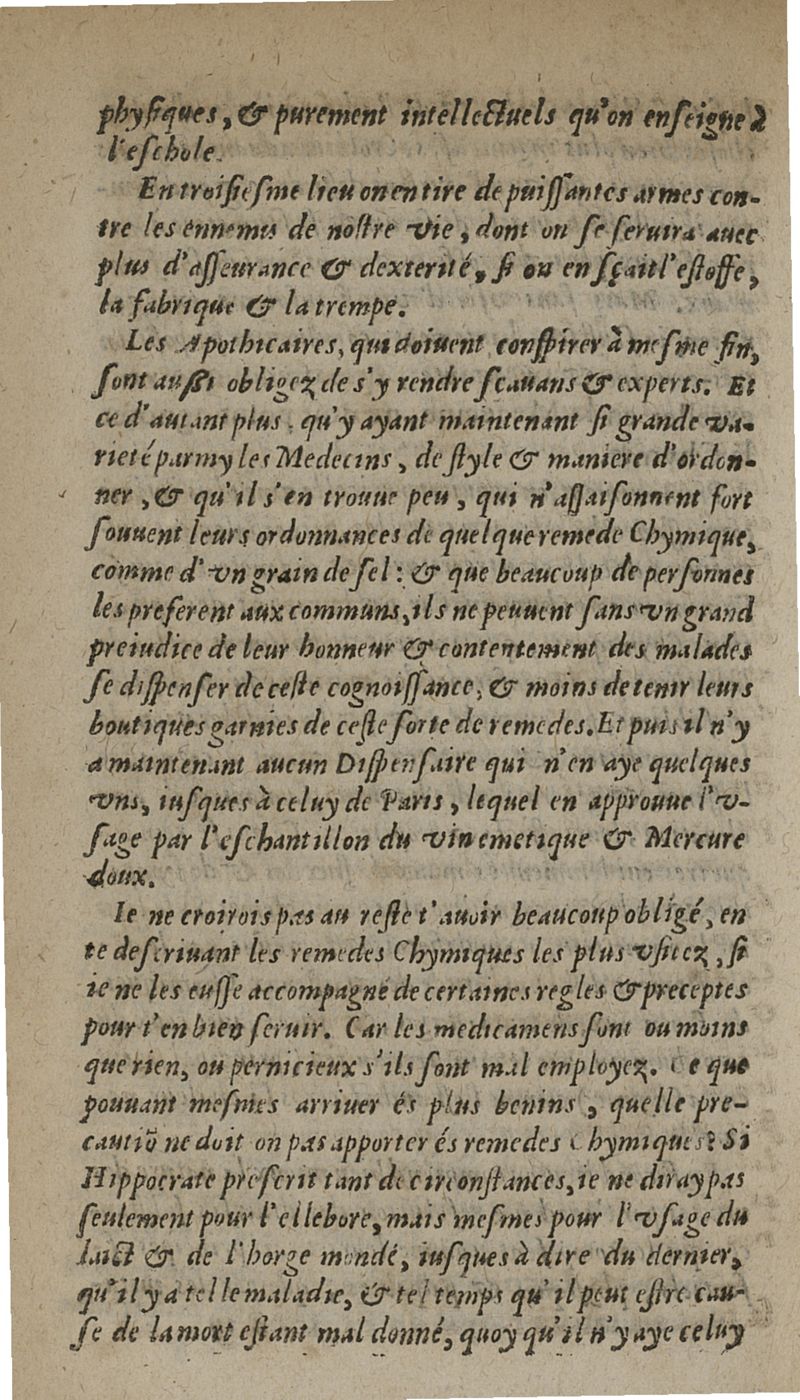 phyſiques, & purement intellectuels qu'on enſeigne à
l'eſchole.
En troiſieſme lieu on en tire de puiſſantes armes con-
tre les ennemis de noſtre vie, dont on ſe ſeruira auec
plus d'aſſeurance & dexterité, ſi on en ſçait l'eſtoffe,
la fabrique & la trempe.
Les Apothicaires, qui doiuent conſpirer à meſme fin,
ſont auſſi obligez de s'y rendre ſcauans & experts. Et
ce d'autant plus, qu'y ayant maintenant ſi grande va-
rieté parmy les Medecins, de ſtyle & maniere d'ordon-
ner, & qu'il s'en trouue peu, qui n'aſſaiſonnent fort
ſouuent leurs ordonnances de quelque remede Chymique,
comme d'vn grain de ſel: & que beaucoup de perſonnes
les preferent aux communs, ils ne peuuent ſans vn grand
preiudice de leur honneur & contentement des malades
ſe diſpenſer de ceſte cognoiſſance, & moins de tenir leurs
boutiques garnies de ceſte ſorte de remedes. Et puis il n'y
a maintenant aucun Diſpenſaire qui n'en aye quelques
vns, iuſques à celuy de Paris, lequel en approuue l'v-
ſage par l'eſchantillon du vin emetique & Mercure
doux.
Ie ne croirois pas au reſte t'auoir beaucoup obligé, en
te deſcriuant les remedes Chymiques les plus vſitez, ſi
ie ne les euſſe accompagné de certaines regles & preceptes
pour t'en bien ſeruir. Car les medicamens ſont ou moins
que rien, ou pernicieux s'ils ſont mal employez. Ce que
pouuant meſmes arriuer és plus benins, quelle pre-
cautiõ ne doit on pas apporter és remedes Chymiques? Si
Hippocrate preſcrit tant de circonſtances, ie ne diray pas
ſeulement pour l'ellebore, mais meſmes pour l'vſage du
laict & de l'horge mondé, iuſques à dire du dernier,
qu'il y a telle maladie, & tel temps qu'il peut eſtre cau-
ſe de la mort eſtant mal donné, quoy qu'il n'y aye celuy